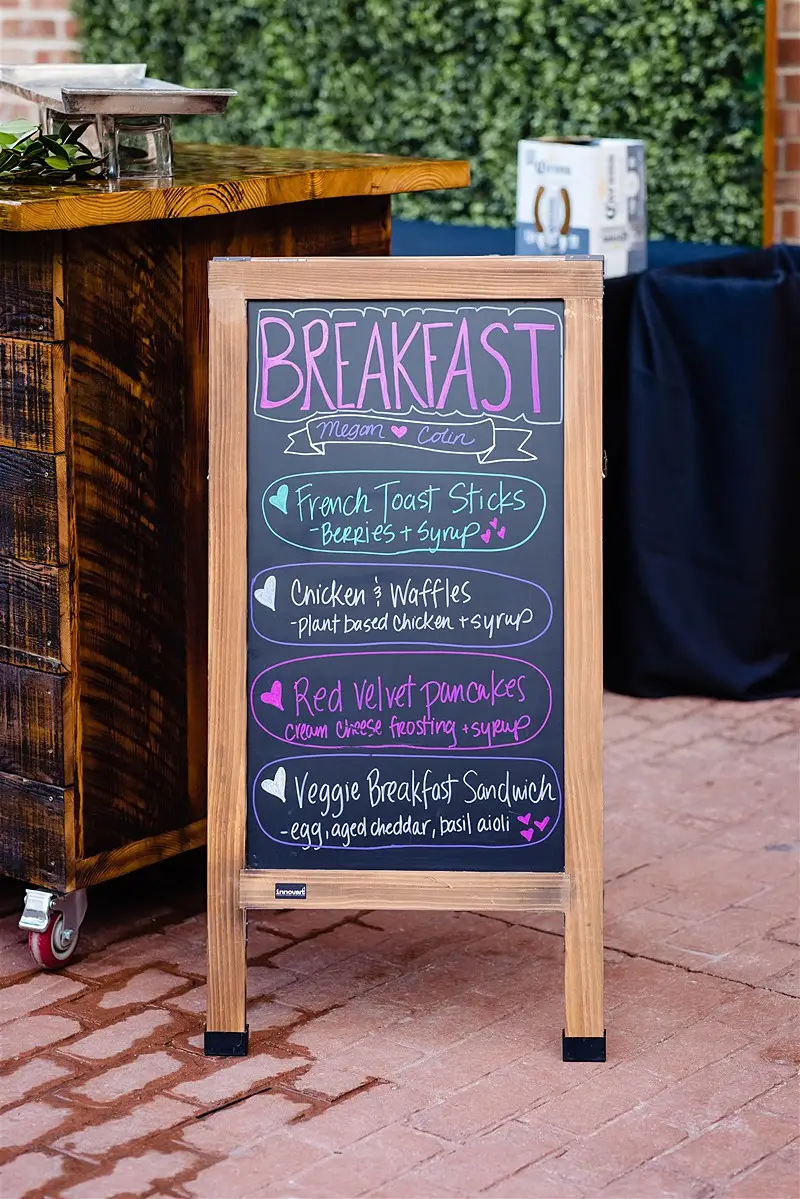 Corona
BREAKFAST
Megan ♥ Colin
French Toast Sticks
-Berries + Syrup
Chicken & Waffles
-plant based chicken + syrup
Red velvet pancakes
cream cheese frosting + syrup
Veggie Breakfast Sandwich
-egg, aged cheddar, basil aioli
innovart